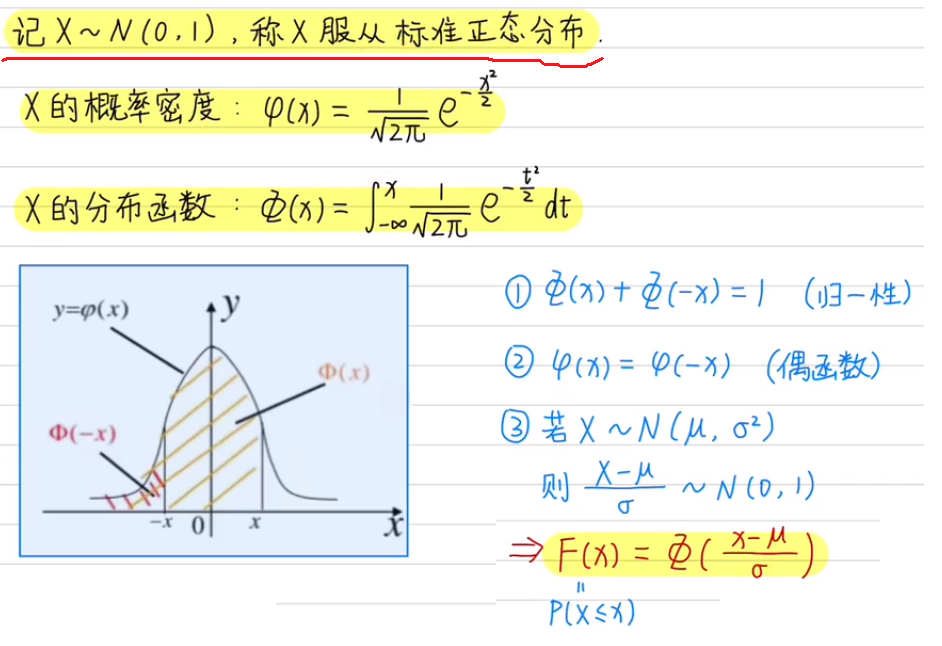 记 X~N(0,1), 称 X 服从 标准正态分布.
X 的概率密度: φ(x) = 1/√2π e^(-x²/2)
X 的分布函数: Φ(x) = ∫_{-∞}^{x} 1/√2π e^(-t²/2) dt
y=φ(x)
y
Φ(x)
Φ(-x)
-x 0 x x
① Φ(x) + Φ(-x) = 1 (归一性)
② φ(x) = φ(-x) (偶函数)
③ 若 X ~ N(μ, σ²)
则 (X-μ)/σ ~ N(0,1)
⇒ F(x) = Φ((x-μ)/σ)
=
P(X≤x)